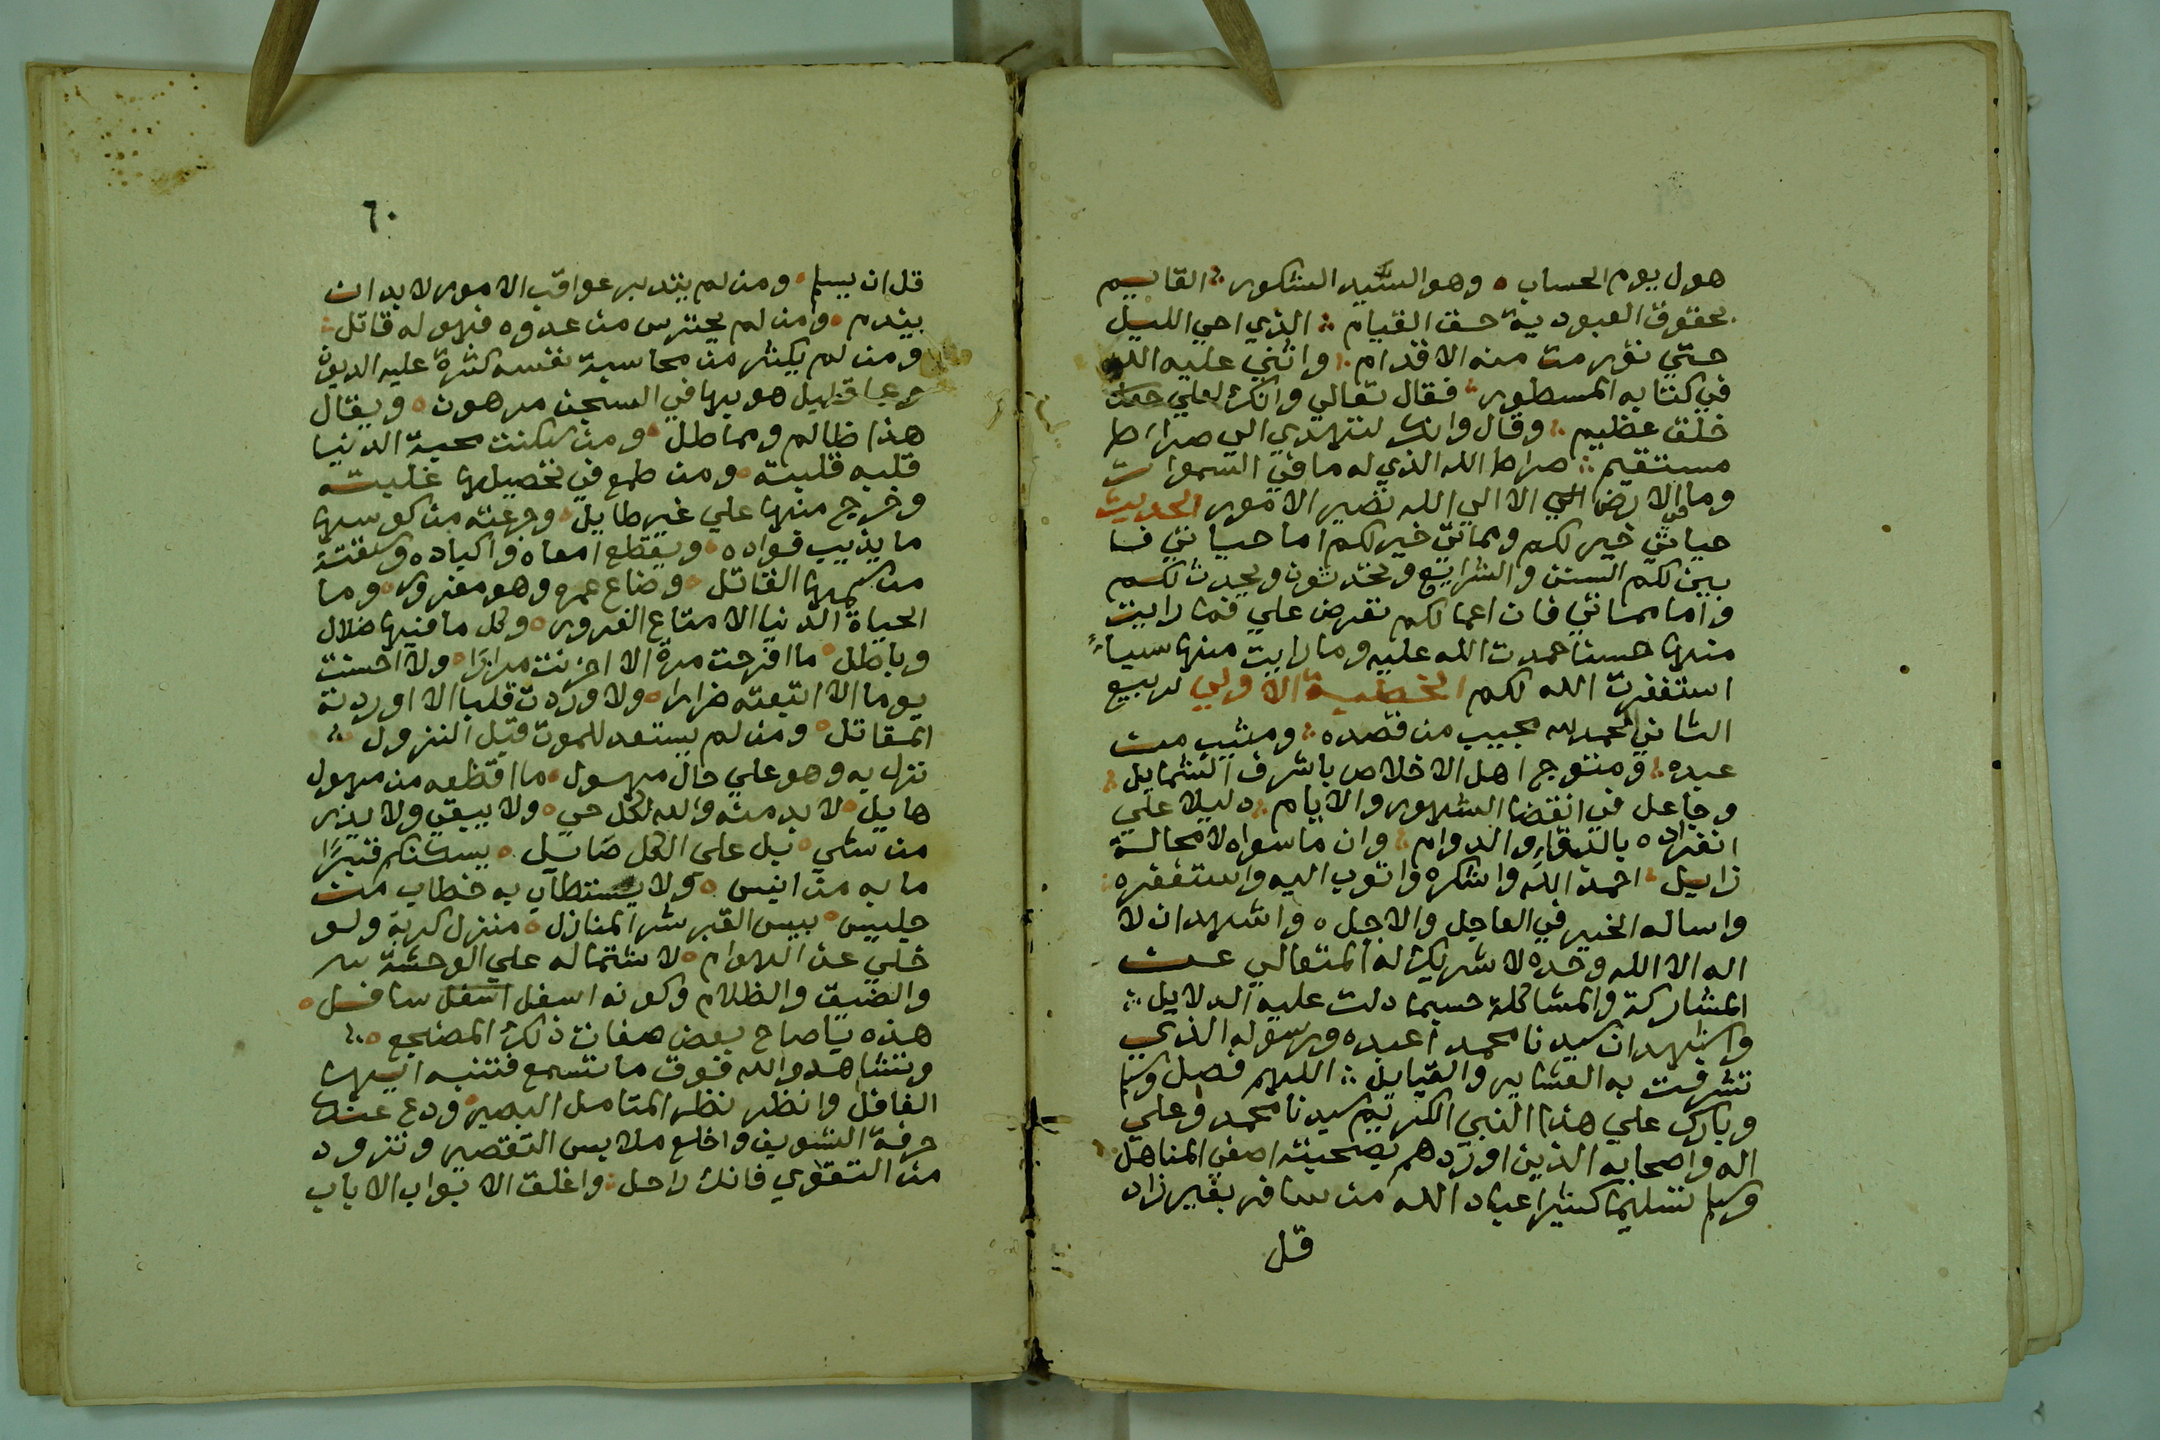 هول يوم الحساب وهو السيد الشكور القايم
بحقوق العبودية حق القيام الذي احيي الليل
حتي تورمت منه الاقدام واثني عليه الله
في كتابه المسطور فقال تعالي وانك لعلي
خلق عظيم وقال وانك لتهدي الي صراط
مستقيم صراط الله الذي له ما في السموات
وما في الارض الا الي الله تصير الامور الحديث
حياتي خير لكم ومماتي خير لكم اما حياتي فا
بين لكم السنن والشرايع وتحدثون ويحدث لكم
واما مماتي فان اعمالكم تعرض علي فما رايت
منها حسنا حمدت الله عليه وما رايت منها سياء
استغفرت الله لكم الخطبة الاولي لربيع
الثاني الحمد لله مجيب من قصده ومثيب من
عبده ومتوج اهل الاخلاص باشرف الشمايل
وجاعل في انقضا الشهور والايام دليلا علي
انفراده بالبقاء والدوام وان ما سواه لا محالة
زايل احمد الله واشكره واتوب اليه واستغفره
واساله الخير في العاجل والاجل واشهد ان لا
اله الا الله وحده لا شريك له المتعالي عن
المشاركة والمشاكلة حسبما دلت عليه الدلايل
واشهد ان سيدنا محمدا عبده ورسوله الذي
تشرفت به العشاير والقبايل اللهم فصل وسلم
وبارك علي هذا النبي الكريم سيدنا محمد وعلي
اله واصحابه الذين اوردهم بصحبته اصفي المناهل
وسلم تسليما كثيرا عباد الله من سافر بغير زاد
قل
٦٠
قل ان يسلم ومن لم يتدبر عواقب الامور لابد ان
يندم ومن لم يحترس من عدوه فهو له قاتل
ومن لم يكثر من محاسبة نفسه كثرة عليه الديون
وعما قليل هو بها في السجن مرهون ويقال
هذا ظالم ومماطل ومن سكنت محبة الدنيا
قلبه قلبته ومن طمع في تحصيلها غلبته
وخرج منها علي غير طايل وجرعته من كوسها
ما يذيب فواده ويقطع امعاه واكباده وسقته
من سمها القاتل وضاع عمره وهو مغرور وما
الحياة الدنيا الا متاع الغرور وكل ما فيها ضلال
وباطل ما افرحت مرة الا احزنت مرارا ولا احسنت
يوما الا اتبعته ضرارا ولا وردت قلبا الا اوردته
المقاتل ومن لم يستعد للموت قبل النزول
نزل به وهو علي حال مهول ما افظعه من مهول
هايل لابد منه والله لكل حي ولا يبقي ولا يذر
من شي بل علي الكل صايل يسكنكم قبرا
ما به من انيس ولا يستطاب به خطاب من
جليس بيس القبر شر المنازل منزل كربة ولو
خلي عن الهوام لاشتماله علي الوحشة
والضيق والظلام وكونه اسفل اسفل سافل
هذه ياصاح بعض صفات ذلك المضجع
وتشاهد والله فوق ما تسمع فتنبه ايها
الغافل وانظر نظر المتامل البصير ودع عنك
حرفة التسويف واخلع ملابس التقصير وتزود
من التقوي فانك راحل واغلق الابواب الا باب